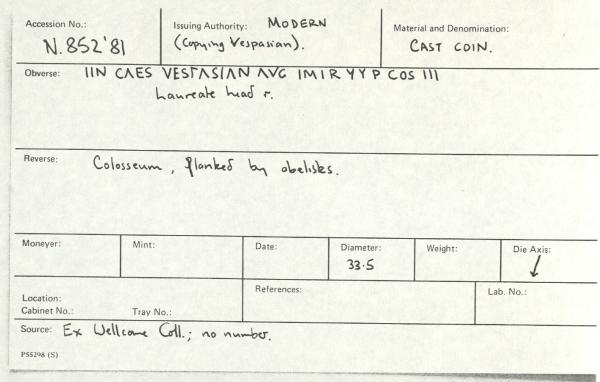 Accession No.:
N.852'81
Issuing Authority: MODERN
(Copying Vespasian).
Material and Denomination:
CAST COIN.
Obverse: IIN CAES VESTASIAN AVG IMIR YYP COS III
Laureate head r.
Reverse: Colosseum, flanked by obelisks.
Moneyer:
Mint:
Date:
Diameter:
33.5
Weight:
Die Axis:
↙
Location:
Cabinet No.: Tray No.:
References:
Lab. No.:
Source: Ex Wellcome Coll.; no number.
P55298 (S)